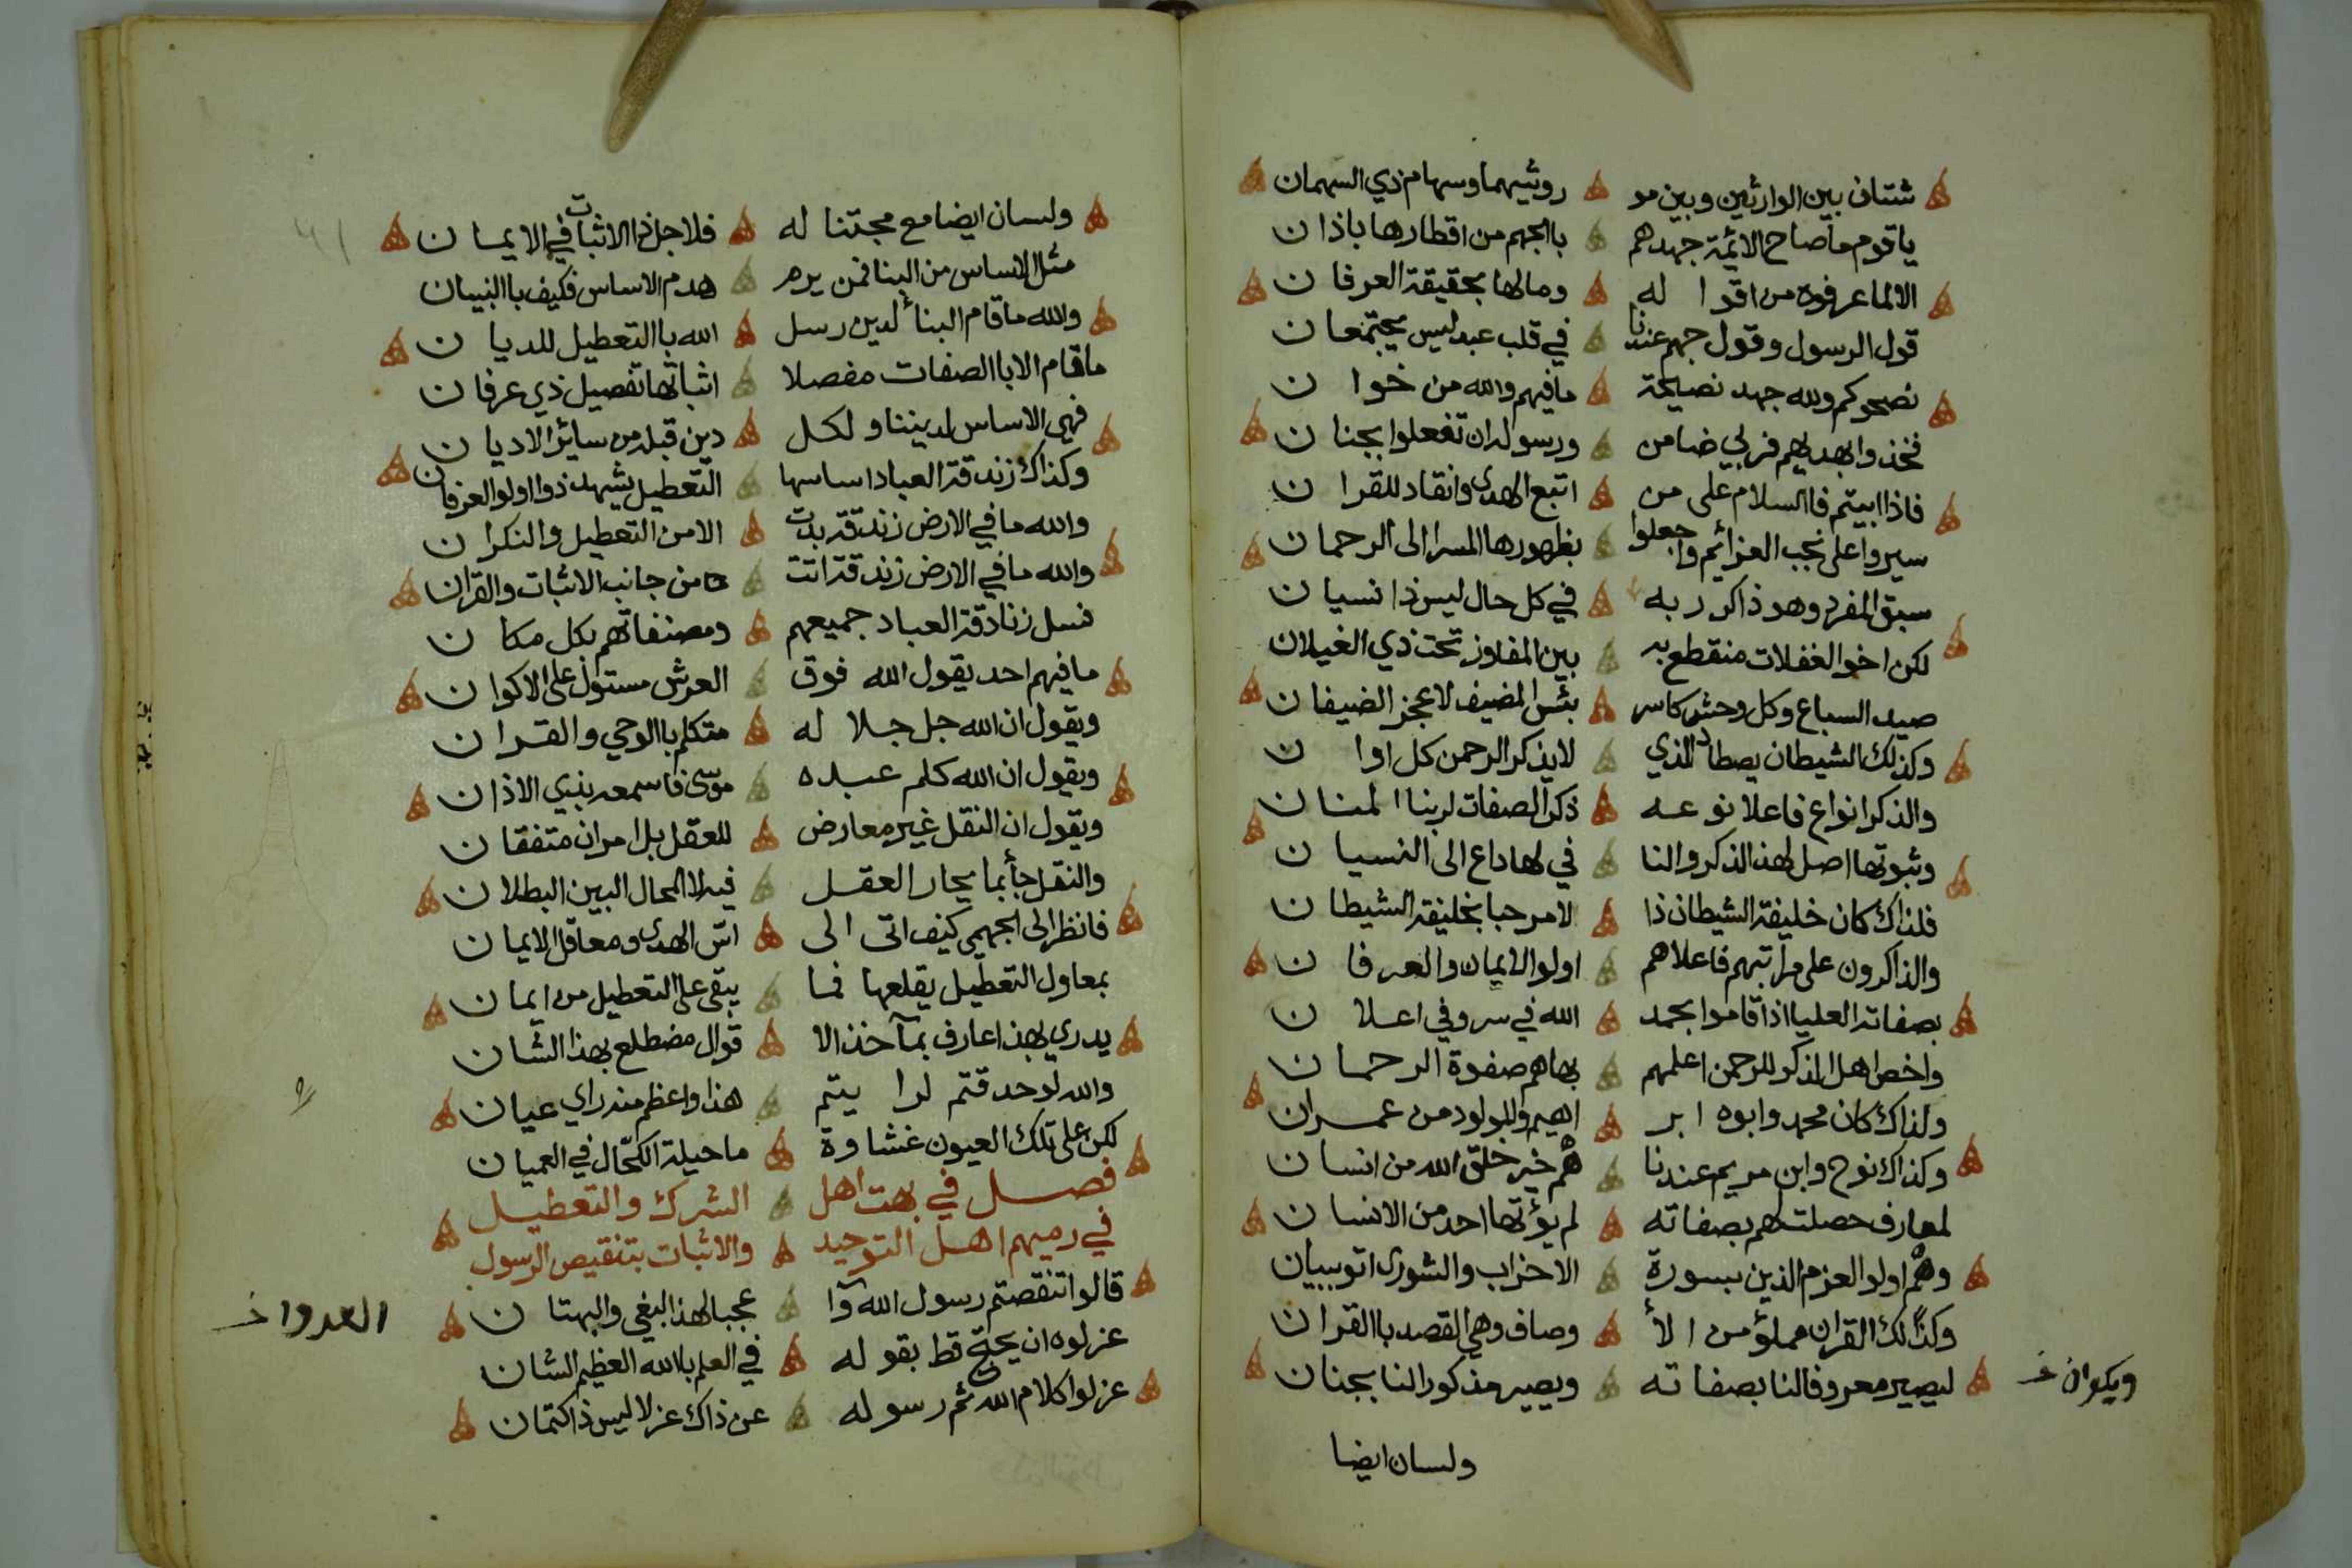 شتان بين الوارثين وبين مو روثيهما وسهام ذي السهمان
ياقوم ما صاح الائمة جهدهم باالجهم من اقطارها باذان
الالما عرفوه من اقوا له ومالها بحقيقة العرفان
قول الرسول وقول جهم عندنا في قلب عبد ليس يجتمعان
نصحوكم والله جهد نصيحة مافيهم والله من خوان
فخذوا بهديهم فربي ضامن ورسوله ان تفعلوا بجنان
فاذا ابيتم فاالسلام على من اتبع الهدى وانقاد للقران
سيروا على نجب العزائم واجعلوا بظهورها المسرا الى الرحمان
سبق المفرد وهو ذاكر ربه في كل حال ليس ذا نسيان
لكن اخو الغفلات منقطع به بين المفاوز تحت ذي الغيلان
صيد السباع وكل وحش كاسر بئس المضيف لاعجز الضيفان
وكذلك الشيطان يصطاد الذي لايذكر الرحمن كل اوان
والذكر انواع فاعلا نوعه ذكر الصفات لربنا المنان
وثبوتها اصل لهذ الذكر والنا في لها داع الى النسيان
فلذاك كان خليفة الشيطان ذا لامرحبا بخليفة الشيطان
والذاكرون على مراتبهم فاعلاهم اولوا الايمان والعرفان
بصفاته العليا اذا قاموا بحمد الله في سر وفي اعلان
واخص اهل الذكر للرحمن اعلمهم بها هم صفوة الرحمان
ولذاك كان محمد وابوه ابر اهيم والمولود من عمران
وكذاك نوح وابن مريم عندنا هم خير خلق الله من انسان
لمعارف حصلت لهم بصفاته لم يؤتها احد من الانسان
وهم اولوا العزم الذين بسورة الاحزاب والشورى اتو ببيان
وكذالك القران مملؤ من الأ وصاف وهي القصد باالقران
ليصير معروفا لنا بصفاته ويصير مذكورا لنا بجنان
ولسان ايضا
ولسان ايضا مع محبتنا له فلاجل ذا الاثبات في الايمان
مثل الاساس من البنا فمن يرم هدم الاساس فكيف باالنبيان
والله ماقام البنأ لدين رسل الله باالتعطيل للديان
ماقام الا باالصفات مفصلا اثباتها تفصيل ذي عرفان
فهي الاساس لديننا ولكل دين قبله من سائر الاديان
وكذاك زندقة العباد اساسها التعطيل يشهد ذوا اولو العرفان
والله ما في الارض زندقة بدت الا من التعطيل والنكران
والله ما في الارض زندقة اتت من جانب الاثبات والقران
فسل زنادقة العباد جميعهم ومصنفاتهم بكل مكان
مافيهم احد يقول الله فوق العرش مستول على الاكوان
ويقول ان الله جل جلاله متكلم باالوحي والقران
ويقول ان الله كلم عبده موسى فاسمعه بذي الاذان
ويقول ان النقل غير معارض للعقل بل امران متفقان
والنقل جأ بما يحار العقل فيه لا المحال البين البطلان
فانظر الى الجهمي كيف اتى الى اسّ الهدى ومعاقل الايمان
بمعاول التعطيل يقلعها فما يبقى على التعطيل من ايمان
يدري بهذا عارف بمآخذ الا قوال مضطلع بهذ الشان
والله لو حدقتم لرايتم هذا واعظم منه راي عيان
لكن على تلك العيون غشاوة ماحيلة الكحّال في العميان
فصل في بهت اهل الشرك والتعطيل
في رميهم اهل التوحيد والاثبات بتنقيص الرسول
قالوا تنقصتم رسول الله وا عجبا لهذ البغي والبهتان
عزلوه ان يحتج قط بقوله في العلم بالله العظيم الشان
عزلوا كلام الله ثم رسوله عن ذاك عزلا ليس ذا كتمان